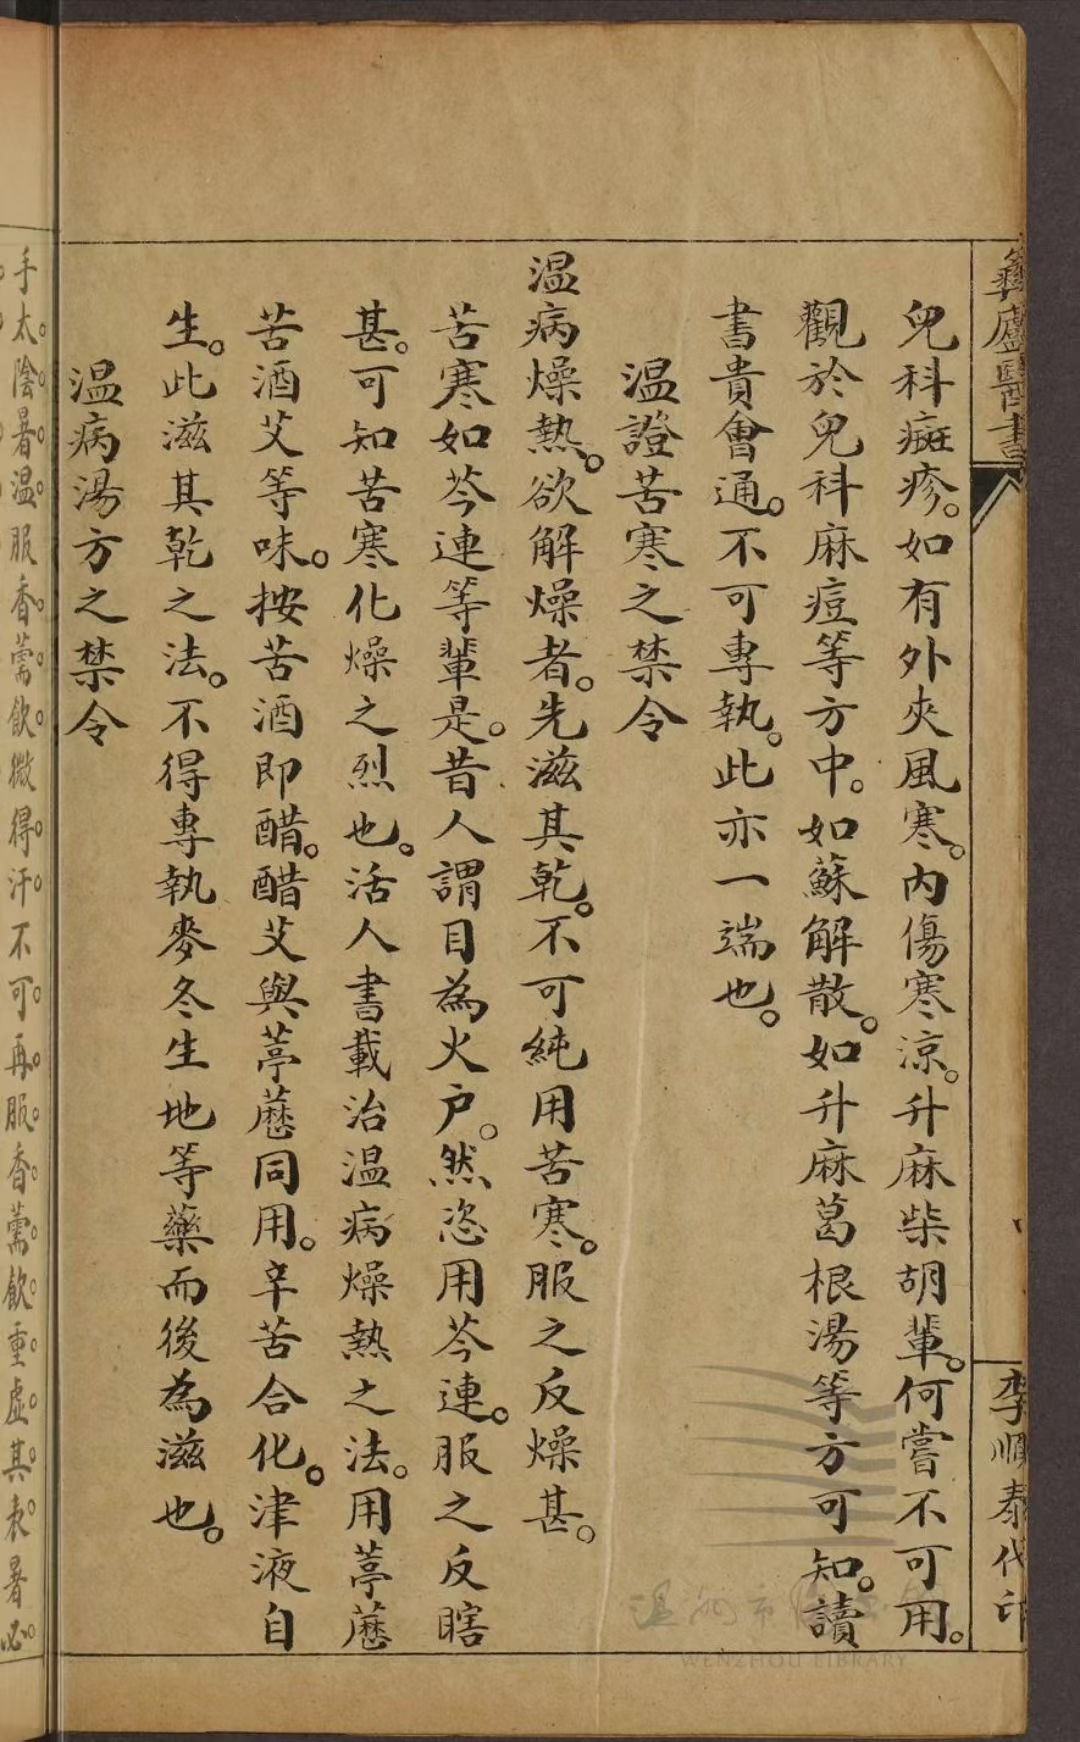 彝廬醫書
李順泰代印
兒科痲疹。如有外夾風寒。內傷寒涼。升麻柴胡輩。何嘗不可用。
觀於兒科麻痘等方中。如蘇解散。如升麻葛根湯等方可知。讀
書貴會通。不可專執。此亦一端也。
温證苦寒之禁令
温病燥熱。欲解燥者。先滋其乾。不可純用苦寒。服之反燥甚。
苦寒如芩連等輩是。昔人謂目為火户。然恣用芩連。服之反瞎
甚。可知苦寒化燥之烈也。活人書載治温病燥熱之法。用葶藶
苦酒艾等味。按苦酒即醋。醋艾與葶藶同用。辛苦合化。津液自
生。此滋其乾之法。不得專執麥冬生地等藥而後為滋也。
温病湯方之禁令
手太陰暑温。服香薷飲。微得汗。不可再服香薷飲。重虛其表。暑必
温州市
WENZHOU LIBRARY